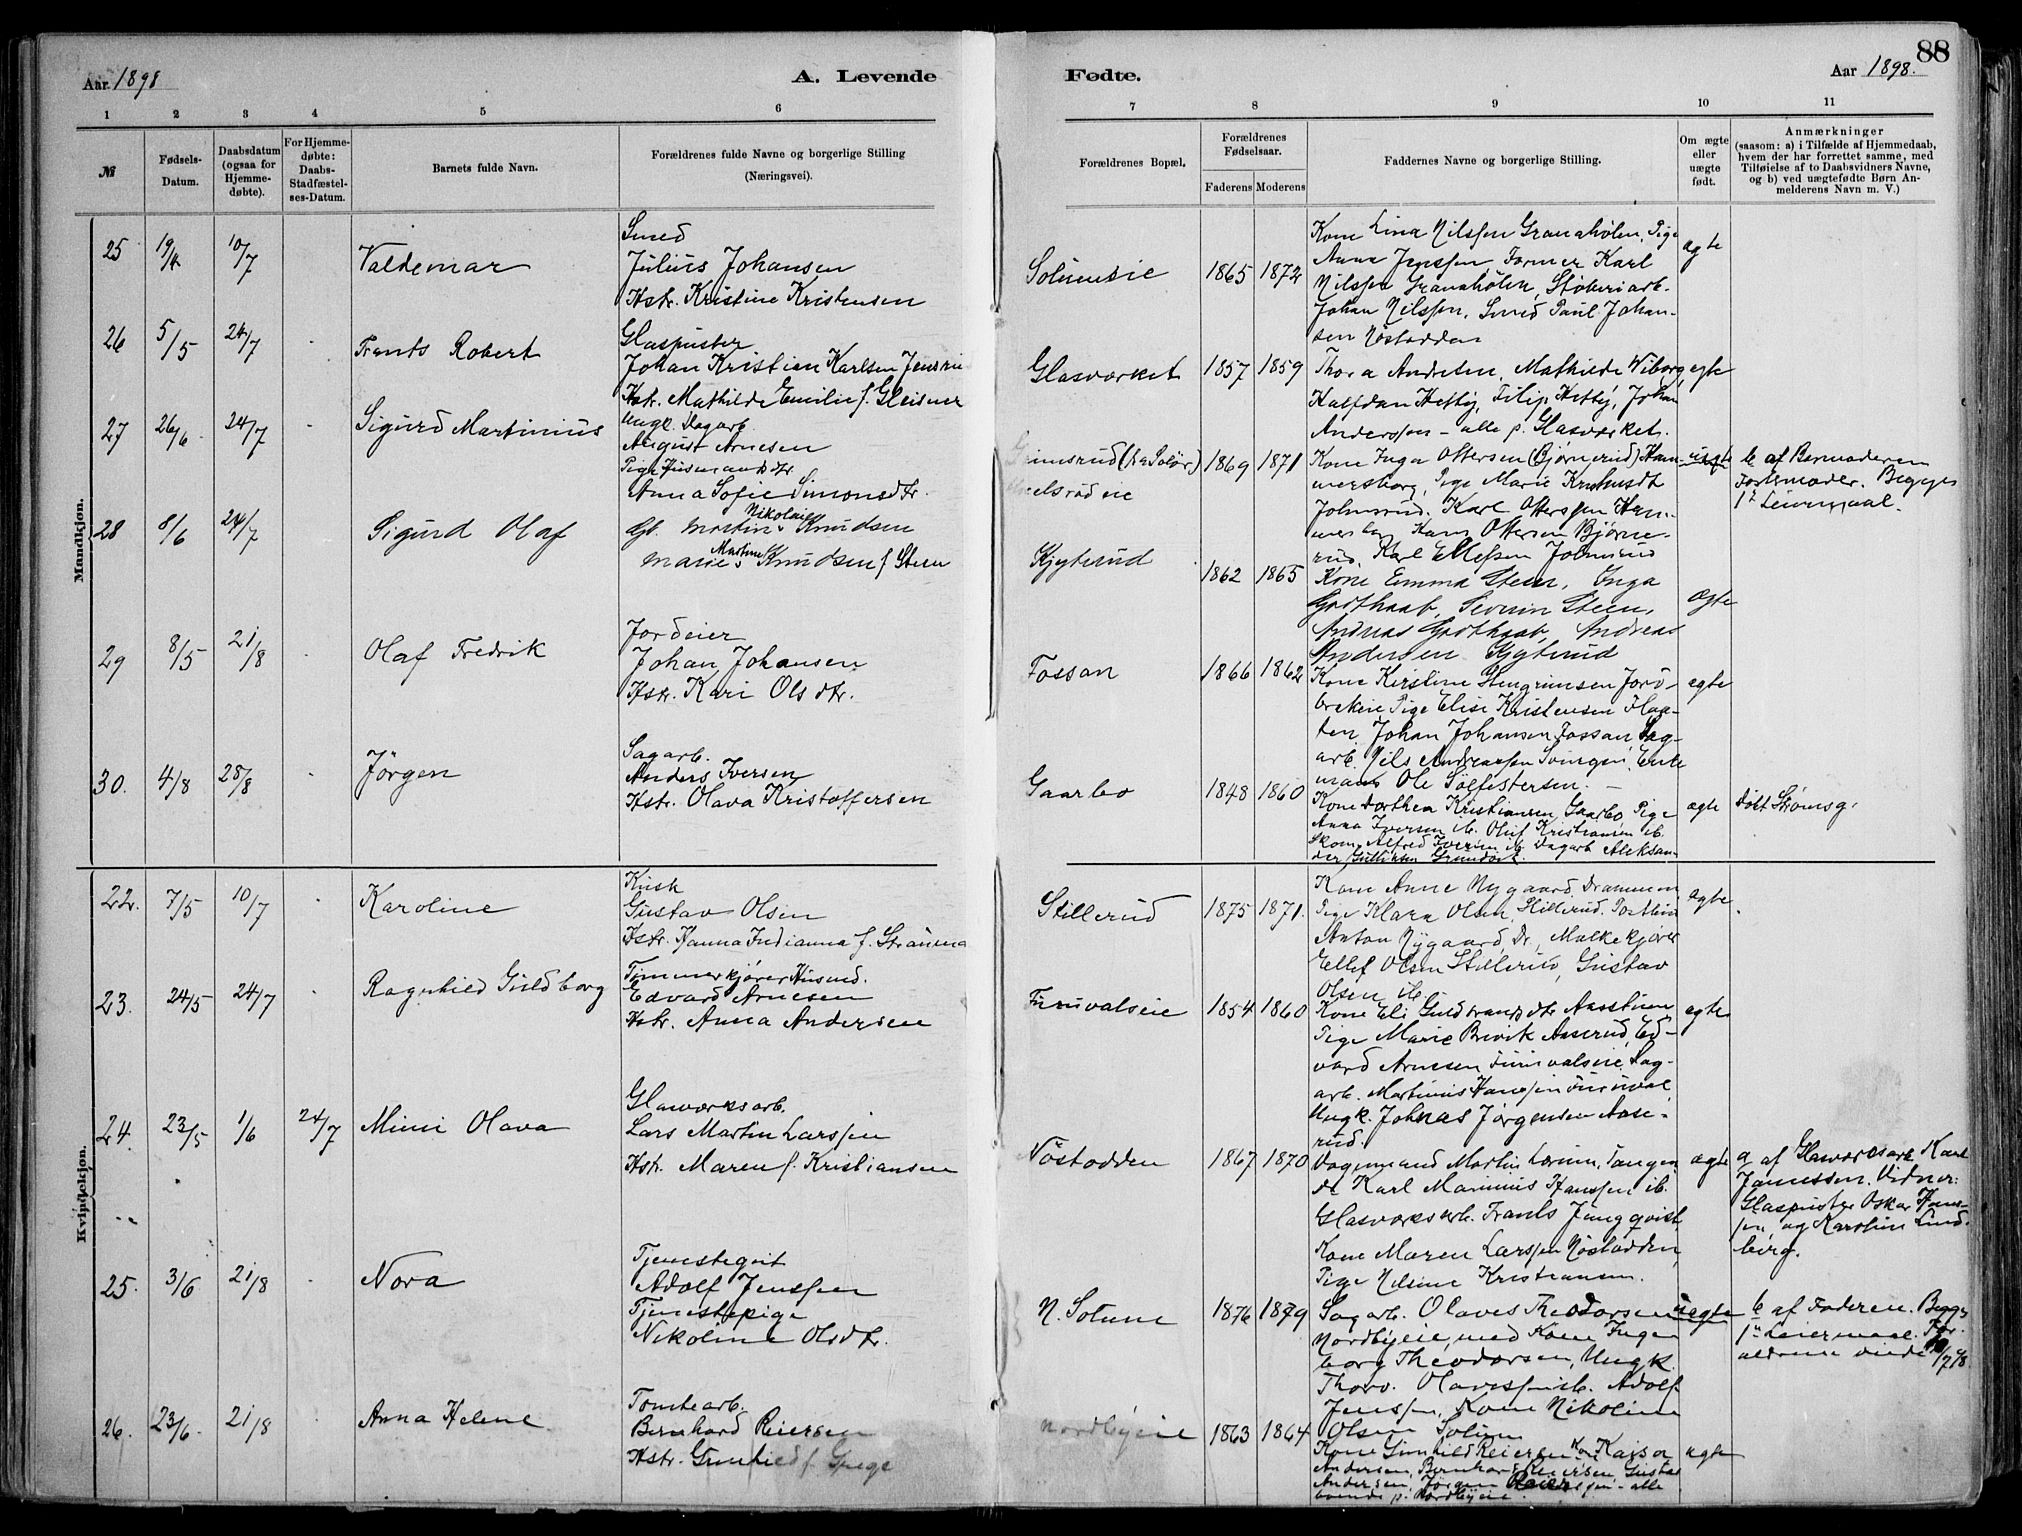 88
Aar 1898 A. Levende Fødte. Aar 1898.
1 2 3 4 5 6 7 8 9 10 11
№
Fødsels-Datum.
Daabsdatum (ogsaa for Hjemmedøbte).
For Hjemmedøbte: Daabs-Stadfæstelses-Datum.
Barnets fulde Navn.
Forældrenes fulde Navne og borgerlige Stilling (Næringsvei).
Forældrenes Bopæl.
Forældrenes Fødselsaar.
Faderens Moderens
Faddernes Navne og borgerlige Stilling.
Om ægte eller uægte født.
Anmærkninger
(saasom: a) i Tilfælde af Hjemmedaab,
hvem der har forrettet samme, med
Tilføielse af to Daabsvidners Navne,
og b) ved uægtefødte Børn Anmelderens Navn m. V.)
Mandkjøn.
25 19/4 10/7 Valdemar
Smed
Julius Johansen
Hstr. Kristine Kristensen
Solumeie 1865 1872
Kone Lina Nilssen Granahølen, Pige
Anna Jenssen Former Karl
Nilssen Granahølen, Støberiarb.
Johan Nilssen, Smed Paul Johan-
sen Nöstodden
ægte
26 5/5 24/7 Frants Robert
Glaspuster
Johan Kristian Karlsen
Hstr. Mathilde Emilie f. Gleisner
Glasværket 1857 1859
Thora Andersen, Mathilde Wiborg,
Halfdan Hetby, Filip Hetby, Johan
Anderssen - alle p. Glasværket.
ægte
27 26/6 24/7 Sigurd Martinius
Ungk. Dagarb.
August Arnesen
Pige Husmandsdtr.
Anna Sofie Simonsdtr.
1869 1871
Kone Inga Ottersen (Bjørnerud) Ham-
mersborg, Pige Marie Knudsdt
Johnsrud. Karl Otterssen Ham-
Hans Ottersen Bjørne-
rud, Karl Ellefsen Johnsrud
uægte
b af Barnmoderen
Begges
1ste Leiermaal.
28 8/6 24/7 Sigurd Olaf
Gb. Martin Nikolai Knudsen
Marie Martine Knudsen f Steen
Kjytterud 1862 1865
Kone Emma Steen, Inga
Godthaab, Severin Steen,
Andreas Godthaab, Andreas
Andersen Kjytterud
Ægte
29 8/5 21/8 Olaf Fredrik
Jordeier
Johan Johansen
Hstr. Kari Olsdtr.
Fossan 1866 1862
Kone Kirstine Stengrimsen Jord-
brekeie Pige Elise Kristensen Flaa-
ten, Johan Johansen Fossan, Sag-
arb. Nils Andreassen Svingen, Enke
mand Ole Sølfestersen. -
ægte
30. 4/8 28/8 Jörgen
Sagarb.
Anders Iversen
Hstr. Olava Kristoffersen
Gaarbo 1848 1860
Kone Dorthea Kristiansen Gaarbo, Pige
Anna Iversen ib. Oluf Kristiansen ib.
Skom. Alfred Iversen ib. Dagarb. Aleksan-
der Gulliksen
ægte
Født Strømsg.
Kvindekjøn.
22. 7/5 10/7 Karoline
Kusk
Gustav Olsen
Hstr. Hanna Indianna f.
Stillerud 1875 1871.
Kone Anne Nygaard Drammen
Pige Klara Olsen, Stillerud.
Anton Nygaard, Dr., Mælkekjører
Ellef Olsen Stillerud, Gustav
Olsen ib.
ægte.
23. 24/5 24/7 Ragnhild Guldborg
Tømmerkjører Husmd.
Edvard Arnesen
Hstr. Anna Andersen
Furuvalseie 1854 1860
Kone Eli Guldbrandsdtr Aasstuen
Pige Marie Brevik Aaserud, Ed-
vard Arnesen Furuvalseie, Sag-
arb. Martinus Hanssen Furuval,
Ungk. Johnas Jørgensen Aase-
rud.
ægte
24. 23/5 1/6 24/7 Mimi Olava
Glasværksarb.
Lars Martin Larssen
Hstr. Maren f. Kristiansen
Nöstodden 1867 1870
Martin Tangen
Karl Marinius Hanssen ib.
Glasværksarb. Frants Jungqvist
Kone Maren Larssen Nöstodden,
Pige Nilsine Kristiansen.
ægte
a af Glasværksarb. Karl
Vidner:
Glaspuster Oskar Hans-
sen og Karoline Lind-
berg.
25. 3/6 21/8 Nora
Tjenestegut
Adolf Jenssen
Tjenestepige
Nikoline Olsdtr.
N. Solum 1876 1879
Sagarb. Olaves Theodorsen
Nordbyeie, med Kone Inge-
borg Theodorsen, Ungk.
Thorv. Olavessen ib. Adolf
Jenssen, Kone Nikoline
Olsen Solum
uægte
b af Faderen. Begges
1ste Leiermaal. For-
ældrene viede
26. 23/6 21/8 Anna Helene
Tomtearb.
Bernhard Reiersen
Hstr. Gunhild f.
Nordbyeie 1863 1864
Kone Gunhild Reiersen, Kone Kaisa
Andersen, Bernhard Reiersen, Gustav
Andersen, Jørgen Reierssen - alle
boende p. Nordbyeie.
ægte